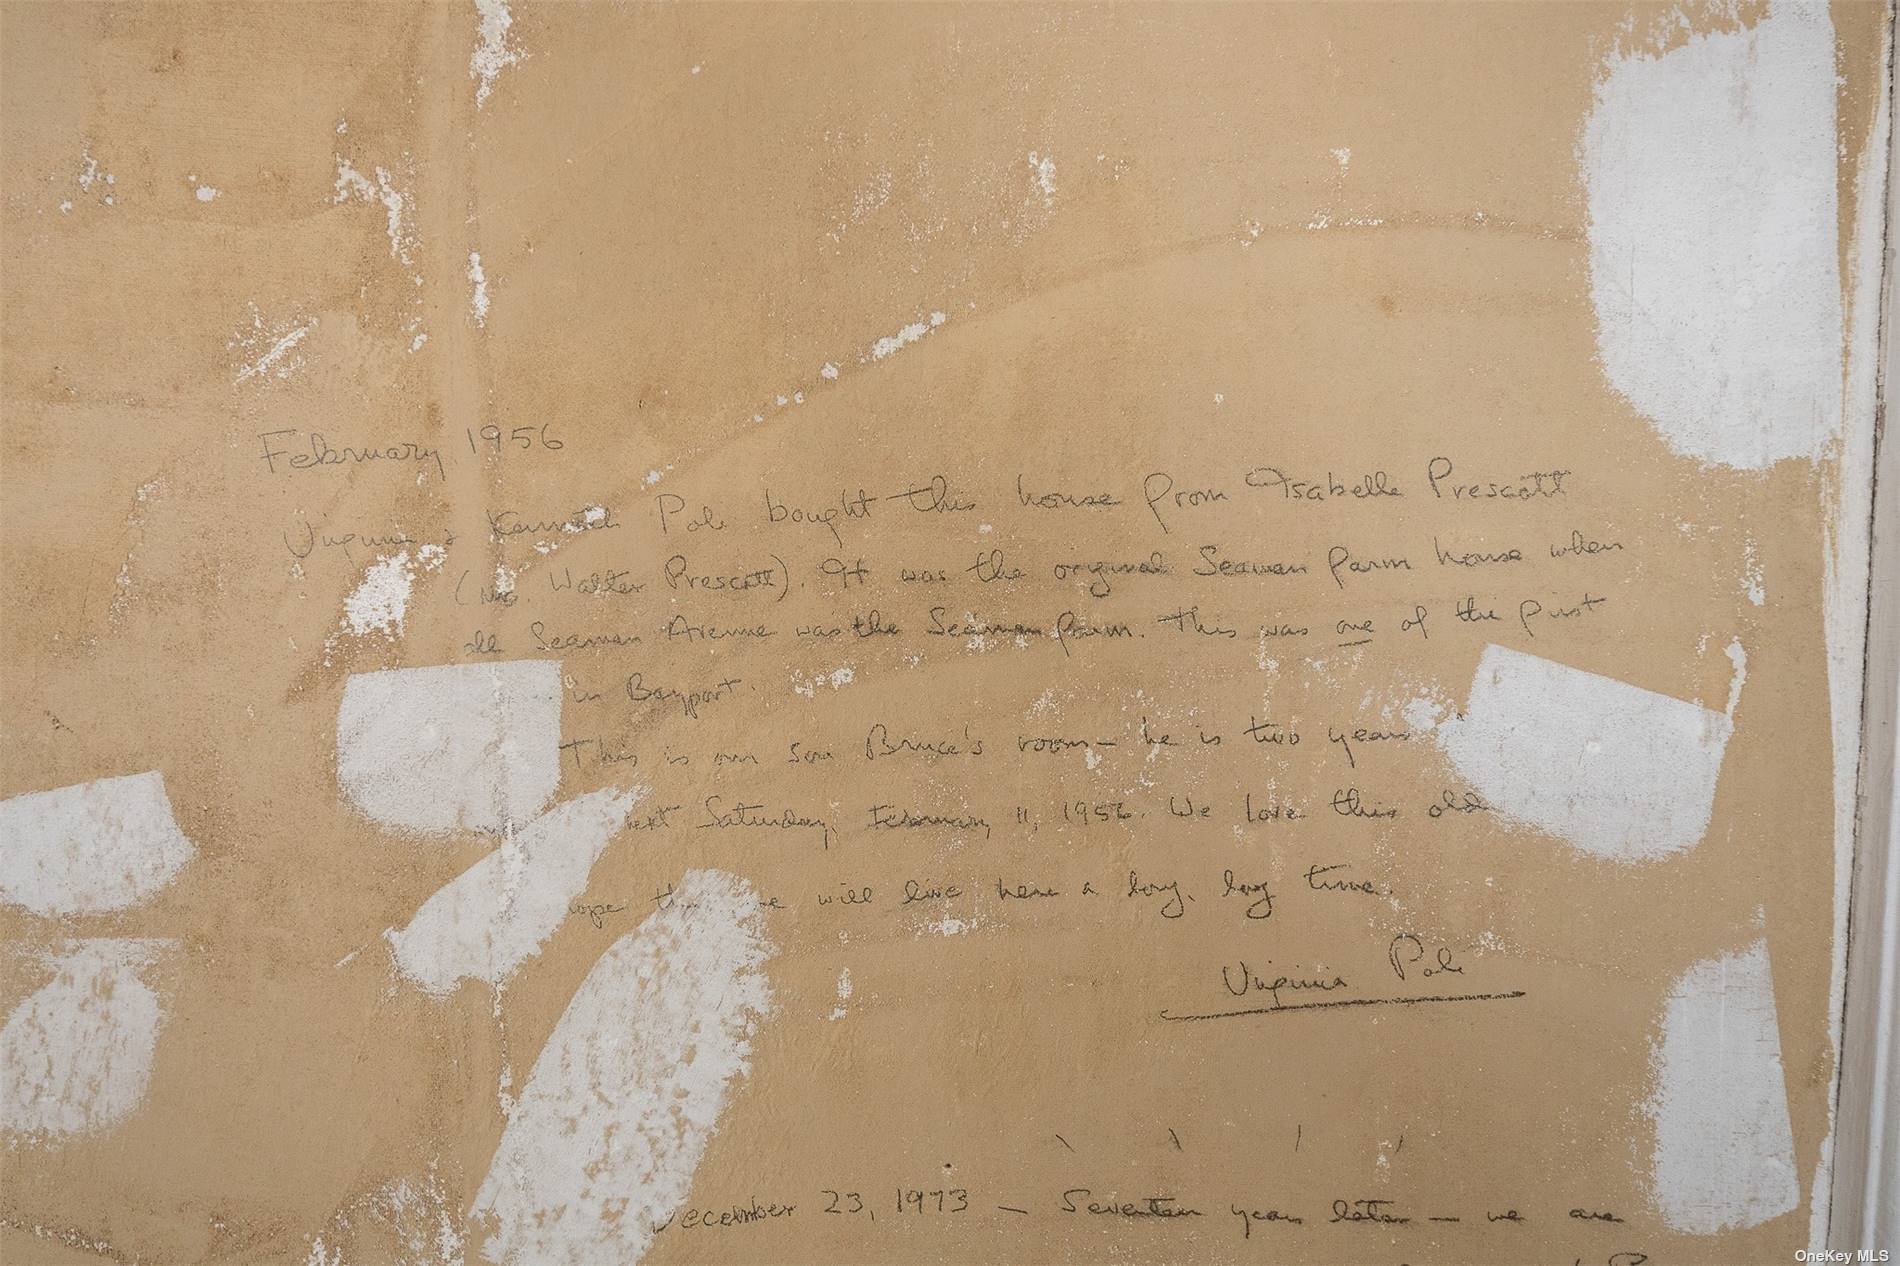 February 1956
Virginia & Kenneth Poli bought this house from Isabelle Prescott
(Mrs. Walter Prescott). It was the original Seaman farm house when
all Seaman Avenue was the Seaman farm. This was one of the first
in Bayport.
This is our son Bruce's room — he is two years
next Saturday, February 11, 1956. We love this old
we will live here a long, long time.
Virginia Poli
December 23, 1973 — Seventeen years later — we are
OneKey MLS